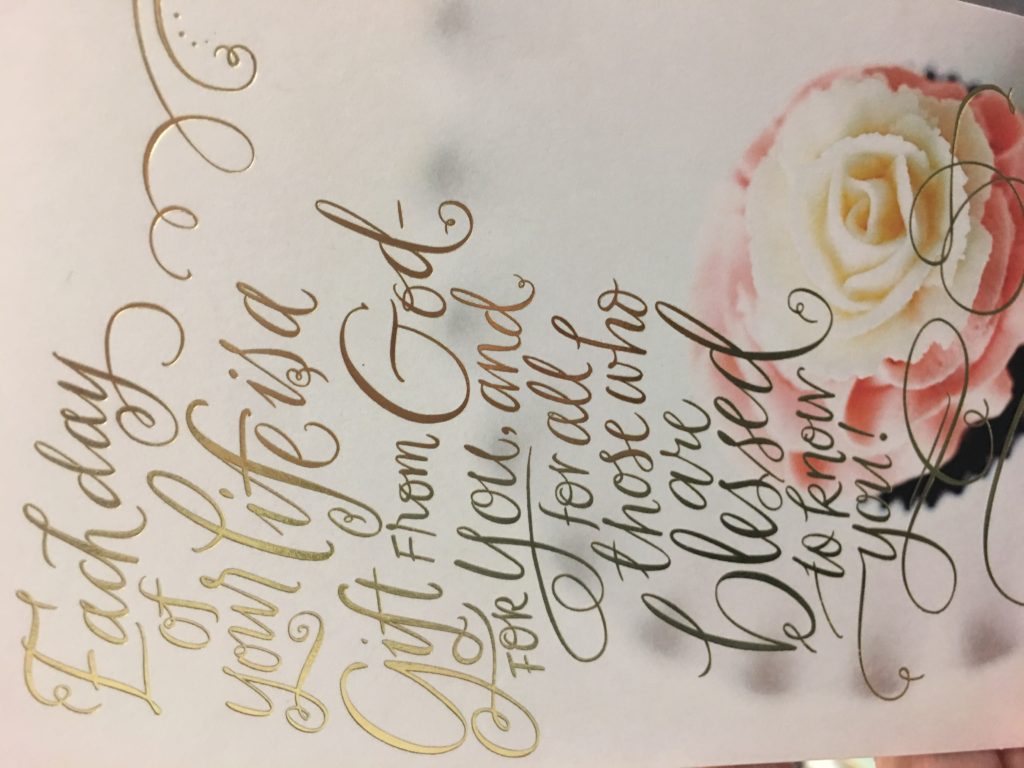 Each day
of
your life is a
Gift From God-
FOR You, and
for all
those who
are
blessed
to know
you!